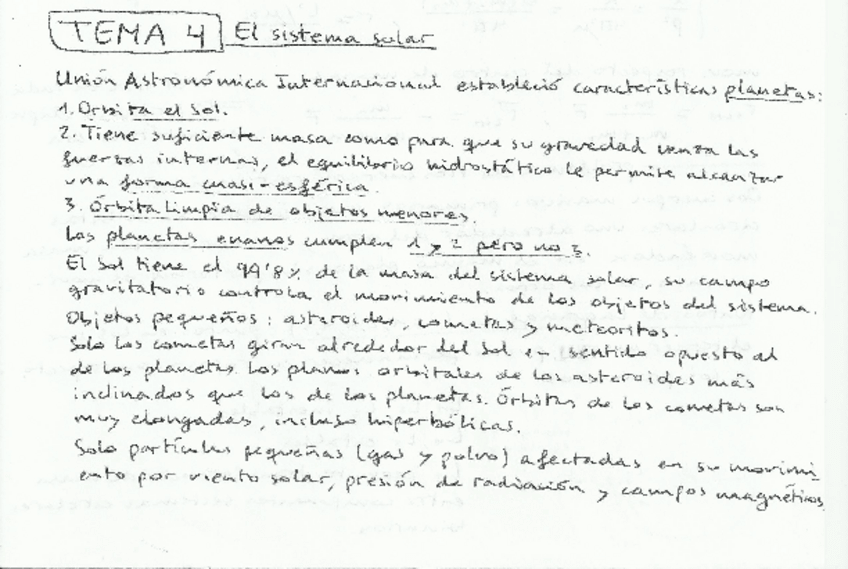 TEMA 4 El sistema solar
Unión Astronómica Internacional estableció características planetas:
1. Orbita el Sol.
2. Tiene suficiente masa como para que su gravedad venza las
fuerzas internas, el equilibrio hidrostático le permite alcanzar
una forma cuasi-esférica.
3. Órbita limpia de objetos menores.
Los planetas enanos cumplen 1 y 2 pero no 3.
El Sol tiene el 99'8% de la masa del sistema solar, su campo
gravitatorio controla el movimiento de los objetos del sistema.
Objetos pequeños: asteroides, cometas y meteoritos.
Solo los cometas giran alrededor del Sol en sentido opuesto al
de los planetas. Los planos orbitales de los asteroides más
inclinados que los de los planetas. Órbitas de los cometas son
muy elongadas, incluso hiperbólicas.
Solo partículas pequeñas (gas y polvo) afectadas en su movimi-
ento por viento solar, presión de radiación y campos magnéticos.